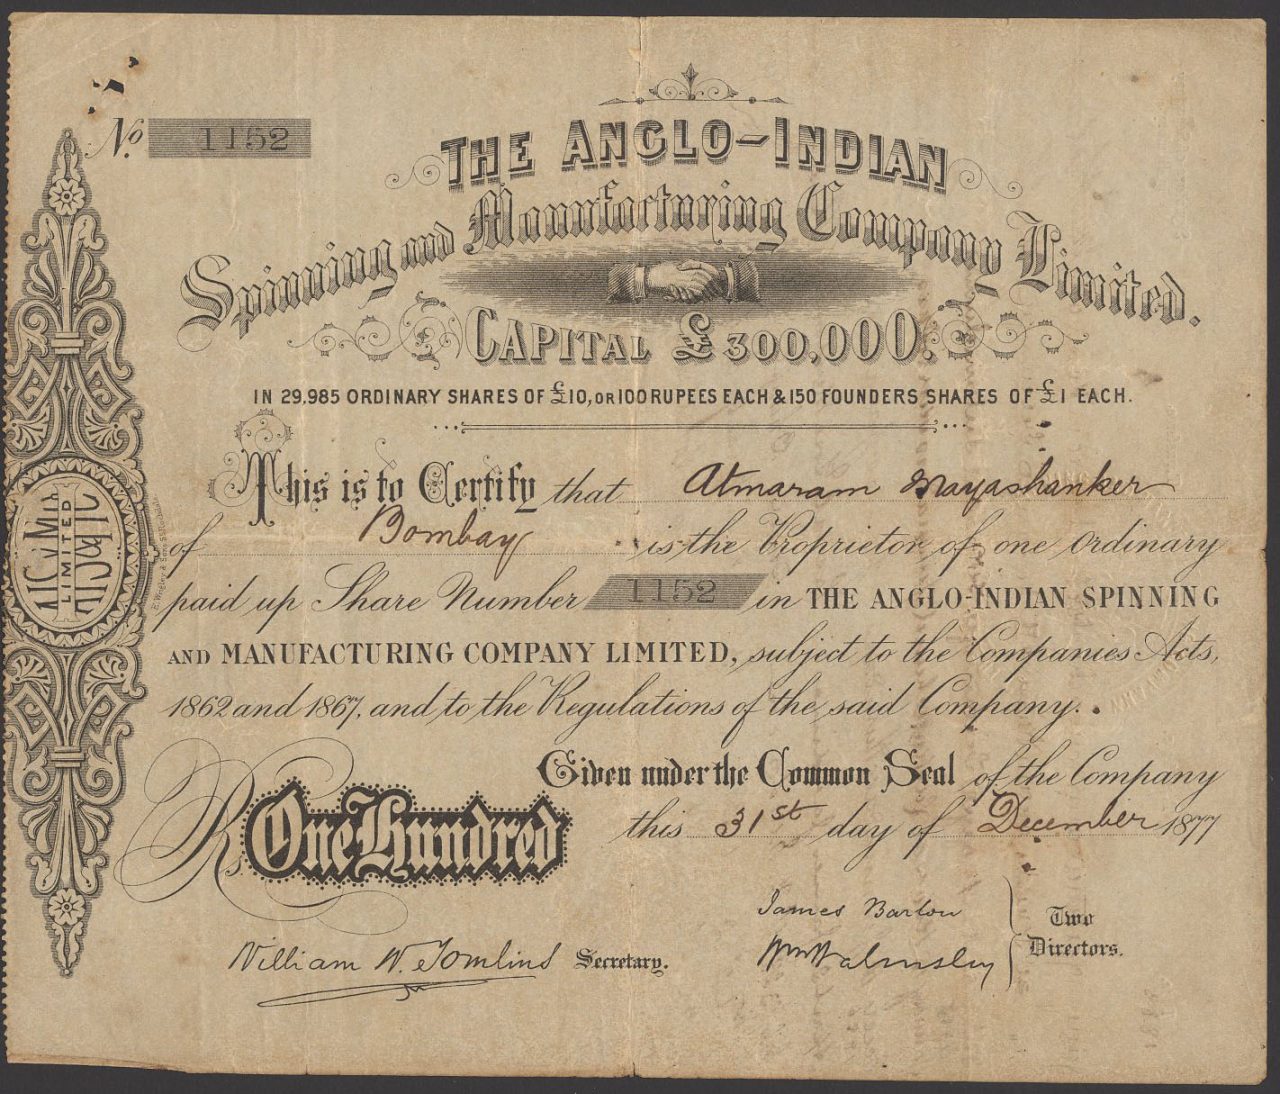 No. 1152
THE ANGLO-INDIAN
Spinning and Manufacturing Company Limited.
CAPITAL £300,000.
IN 29,985 ORDINARY SHARES OF £10, OR 100 RUPEES EACH & 150 FOUNDERS SHARES OF £1 EACH.
This is to Certify that Atmaram Mayashanker
of Bombay is the Proprietor of one ordinary
paid up Share Number 1152 in THE ANGLO-INDIAN SPINNING
AND MANUFACTURING COMPANY LIMITED, subject to the Companies Acts,
1862 and 1867, and to the Regulations of the said Company.
Given under the Common Seal of the Company
this 31st day of December 1877
Rs One Hundred
James Barlow
Two
William W. Tomlins Secretary. Wm Walmsley Directors.
LIMITED